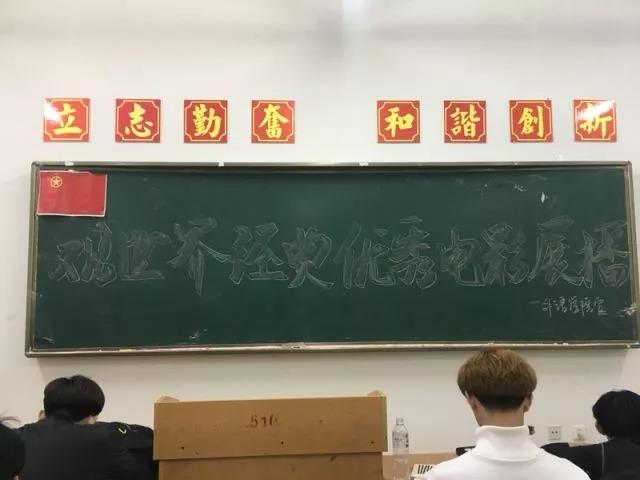 立志勤奮 和諧創新
观世界经典优秀电影展播
一外语学院宣
510